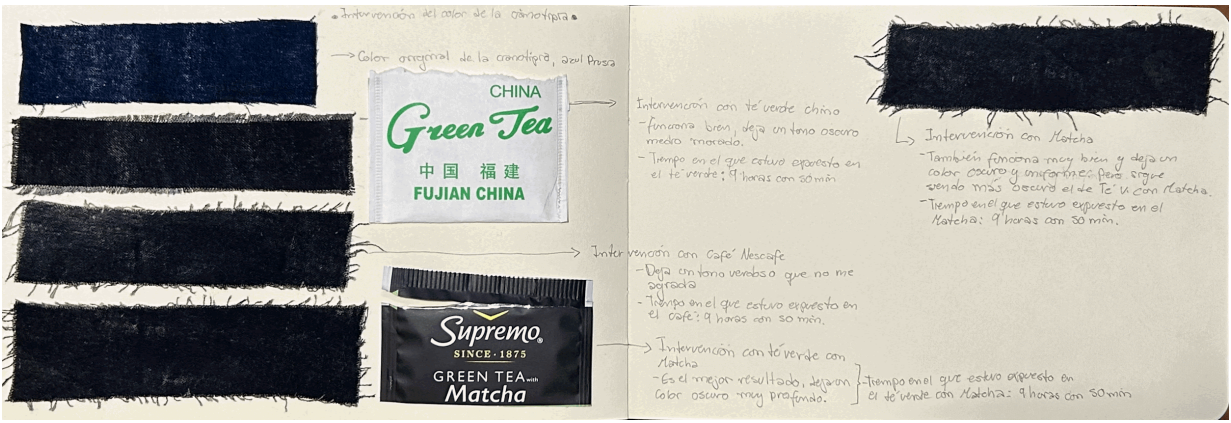 • Intervención del color de la cianotipia •
→ Color original de la cianotipia, azul Prusa
CHINA
Green Tea
中国 福建
FUJIAN CHINA
Intervención con té verde chino
- funciona bien, deja un tono oscuro
medio morado.
- Tiempo en el que estuvo expuesto en
el té verde: 9 horas con 50 min
Intervención con Café Nescafe
- Deja un tono verdoso que no me
agrada
- Tiempo en el que estuvo expuesto en
el café: 9 horas con 50 min.
Supremo®
SINCE · 1875
GREEN TEA with
Matcha
Intervención con té verde con
Matcha
- Es el mejor resultado, deja un
color oscuro muy profundo.
- Tiempo en el que estuvo expuesto en
el té verde con Matcha: 9 horas con 50 min
Intervención con Matcha
- También funciona muy bien y deja un
color oscuro y uniforme, pero sigue
siendo más oscuro el de Té v. con Matcha.
- Tiempo en el que estuvo expuesto en el
Matcha: 9 horas con 50 min.